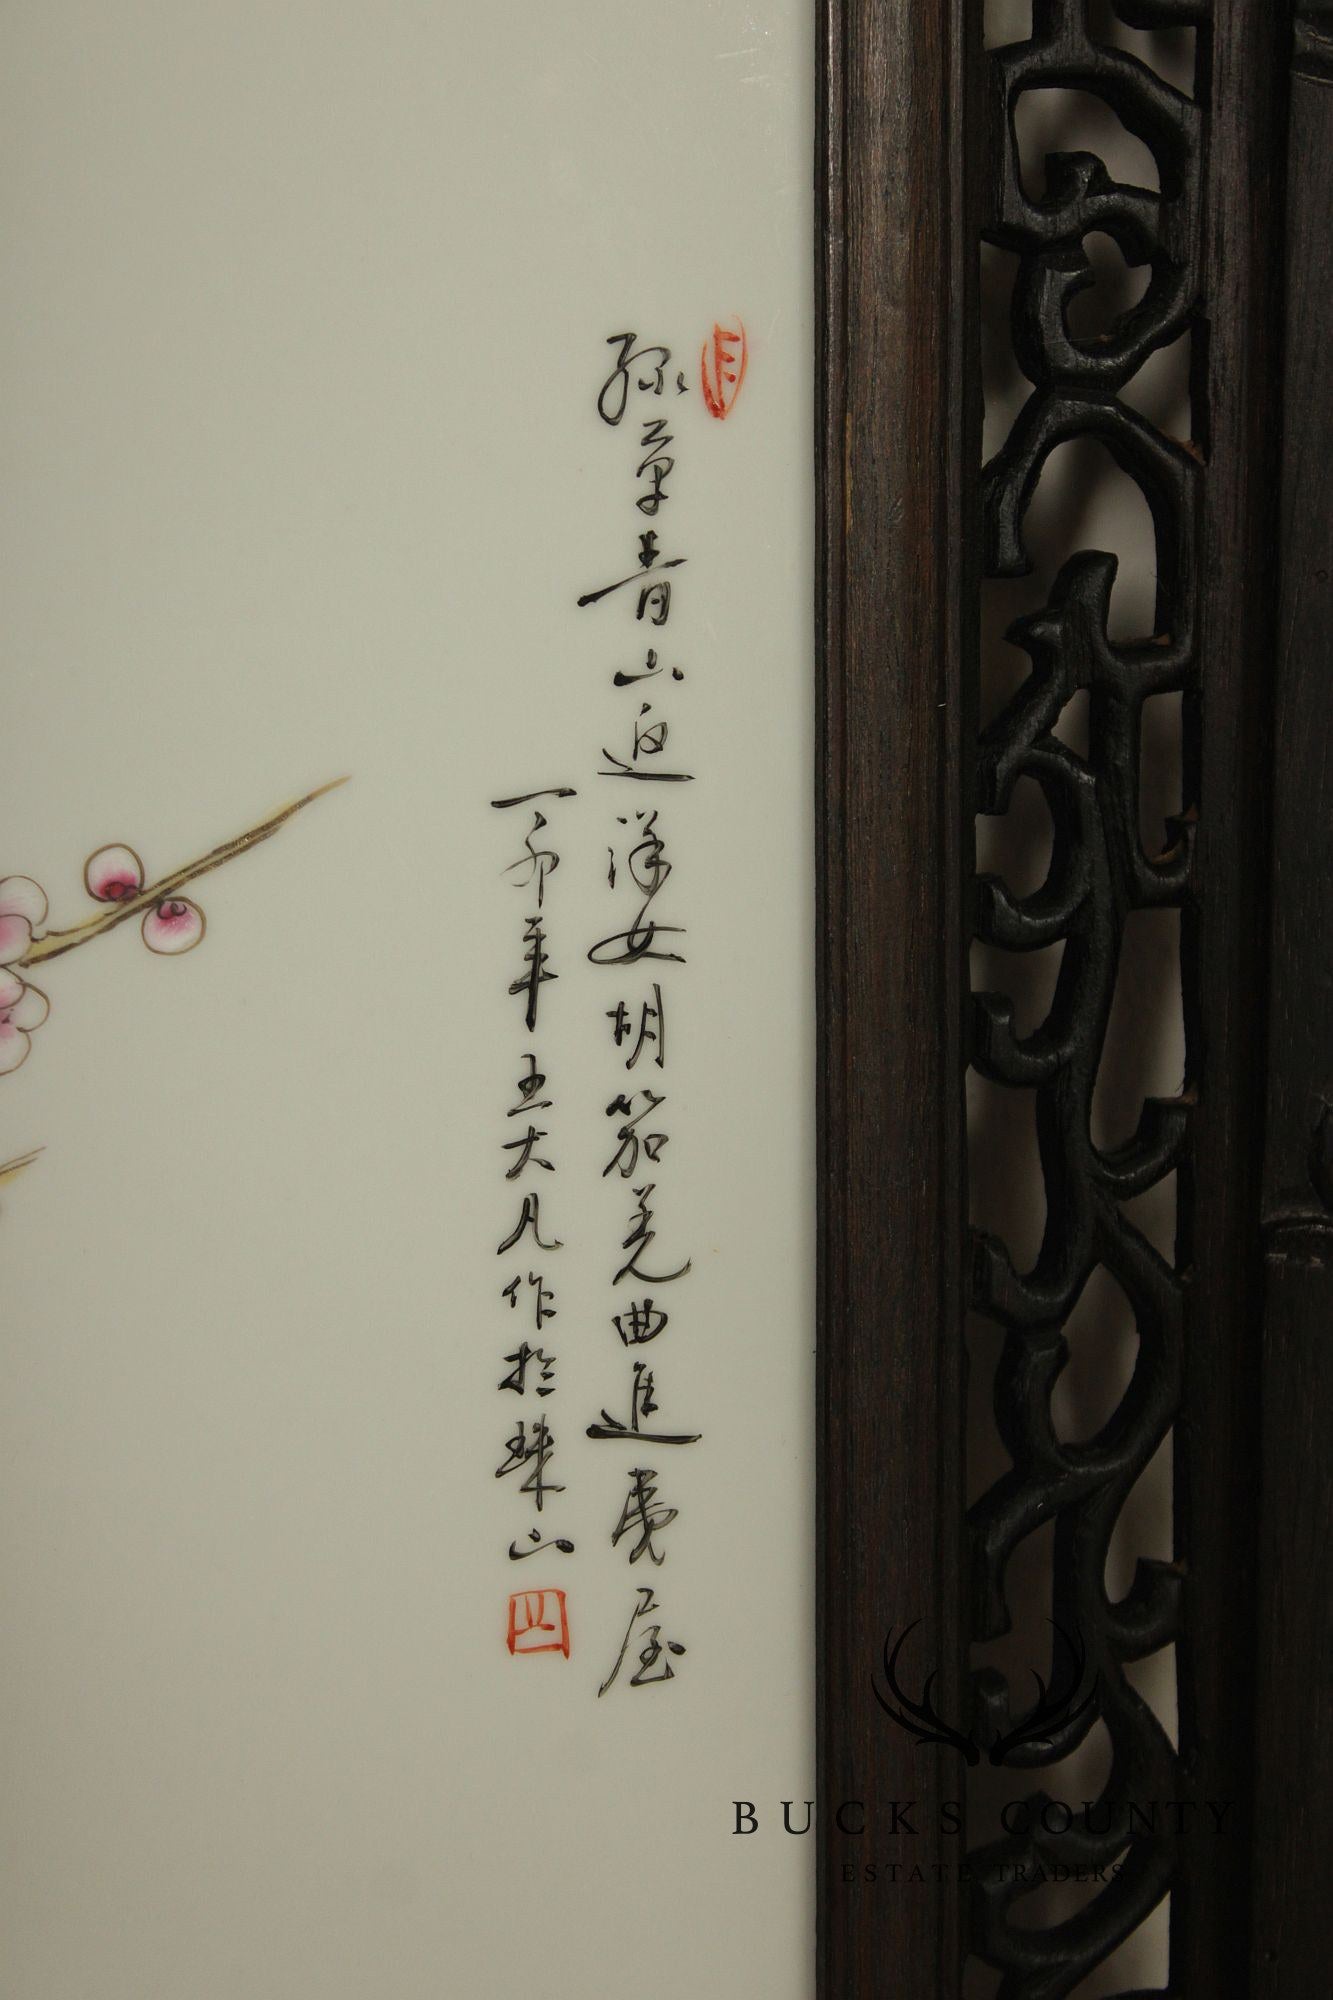 綠草青山迎洋女胡笳羌曲進虜屋
一卯年王大凡作於珠山
BUCKS COUNTY
ESTATE TRADERS